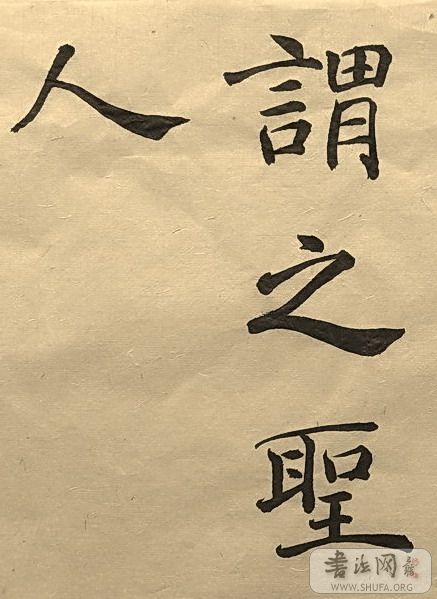 謂之聖
人
書法网
WWW.SHUFA.ORG